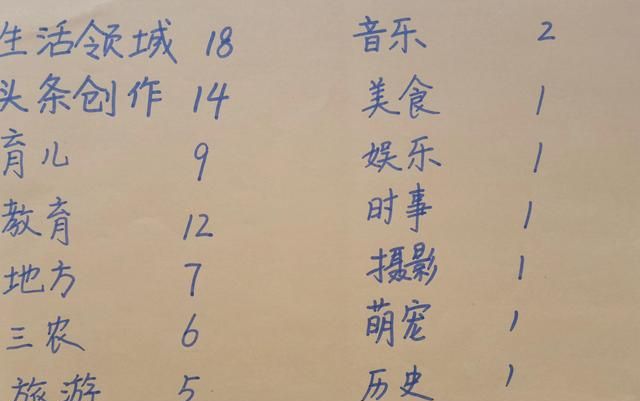 生活领域 18
头条创作 14
育儿 9
教育 12
地方 7
三农 6
旅游 5
音乐 2
美食 1
娱乐 1
时事 1
摄影 1
萌宠 1
历史 1